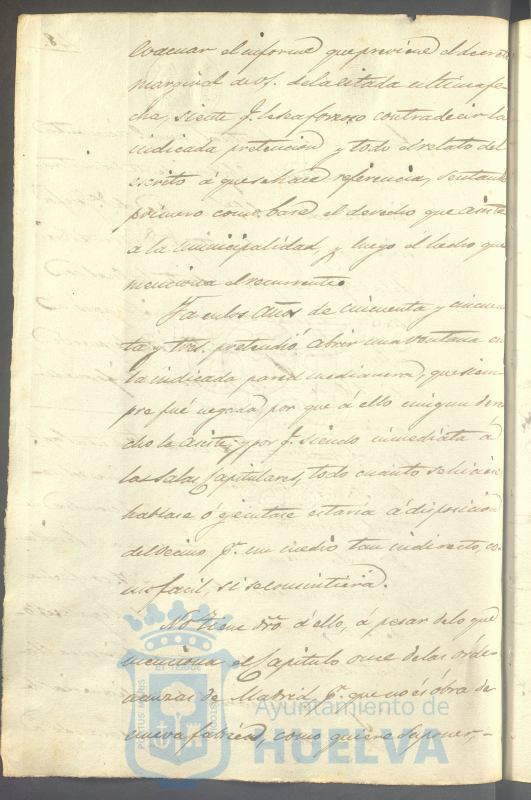 evacuar el informe que previene el decreto
marginal de vs. de la citada ultima fe-
cha, siente q.e le sea forzoso contradecir la
indicada pretencion y todo el relato del
escrito á que se hace referencia, sentando
primero como base el derecho que asiste
a la municipalidad, y luego el hecho que
menciona el recurrente.
Ya en los años de cincuenta y cincuen
ta y tres pretendió abrir una ventana en
la indicada pared medianera, que siem
pre fué negada, por que á ello ningun dere
cho le asiste, y por q.e siendo inmediata á
las Salas Capitulares, todo cuanto se hiciese
hablase ó ejecutase estaria á disposicion
del vecino p.r un medio tan indirecto, co-
mo facil, si se consintiera.
No tiene dro. á ello, á pesar de lo que
menciona el Capitulo once de las órde-
nanzas de Madrid, p.r que no és óbra de
nueva fabrica, como quiere suponer,-
PORTUS MARIS
ET TERRAE
CUSTODIA
Ayuntamiento de
HUELVA